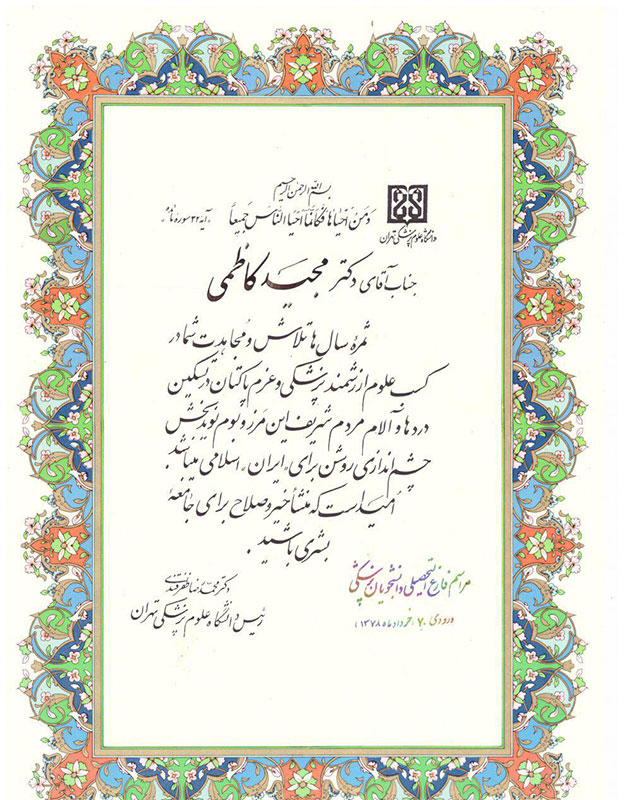 بسم الله الرحمن الرحیم
و من احیاها فکانما احیا الناس جمیعا «آیه ۳۲ سوره مائده»
دانشگاه علوم پزشکی تهران
جناب آقای دکتر مجید کاظمی
ثمرهٔ سال ها تلاش و مجاهدت شما در
کسب علوم ارزشمند پزشکی و عزم پاکتان در تسکین
دردها و آلام مردم شریف این مرز و بوم نویدبخش
چشم اندازی روشن برای «ایران» اسلامی میباشد.
امید است که منشأ خیر و صلاح برای جامعهٔ
بشری باشید.
مراسم فارغ التحصیلی دانشجویان پزشکی
ورودی ۷۰ (خرداد ماه ۱۳۷۸)
دکتر محمدرضا ظفرقندی
رئیس دانشگاه علوم پزشکی تهران